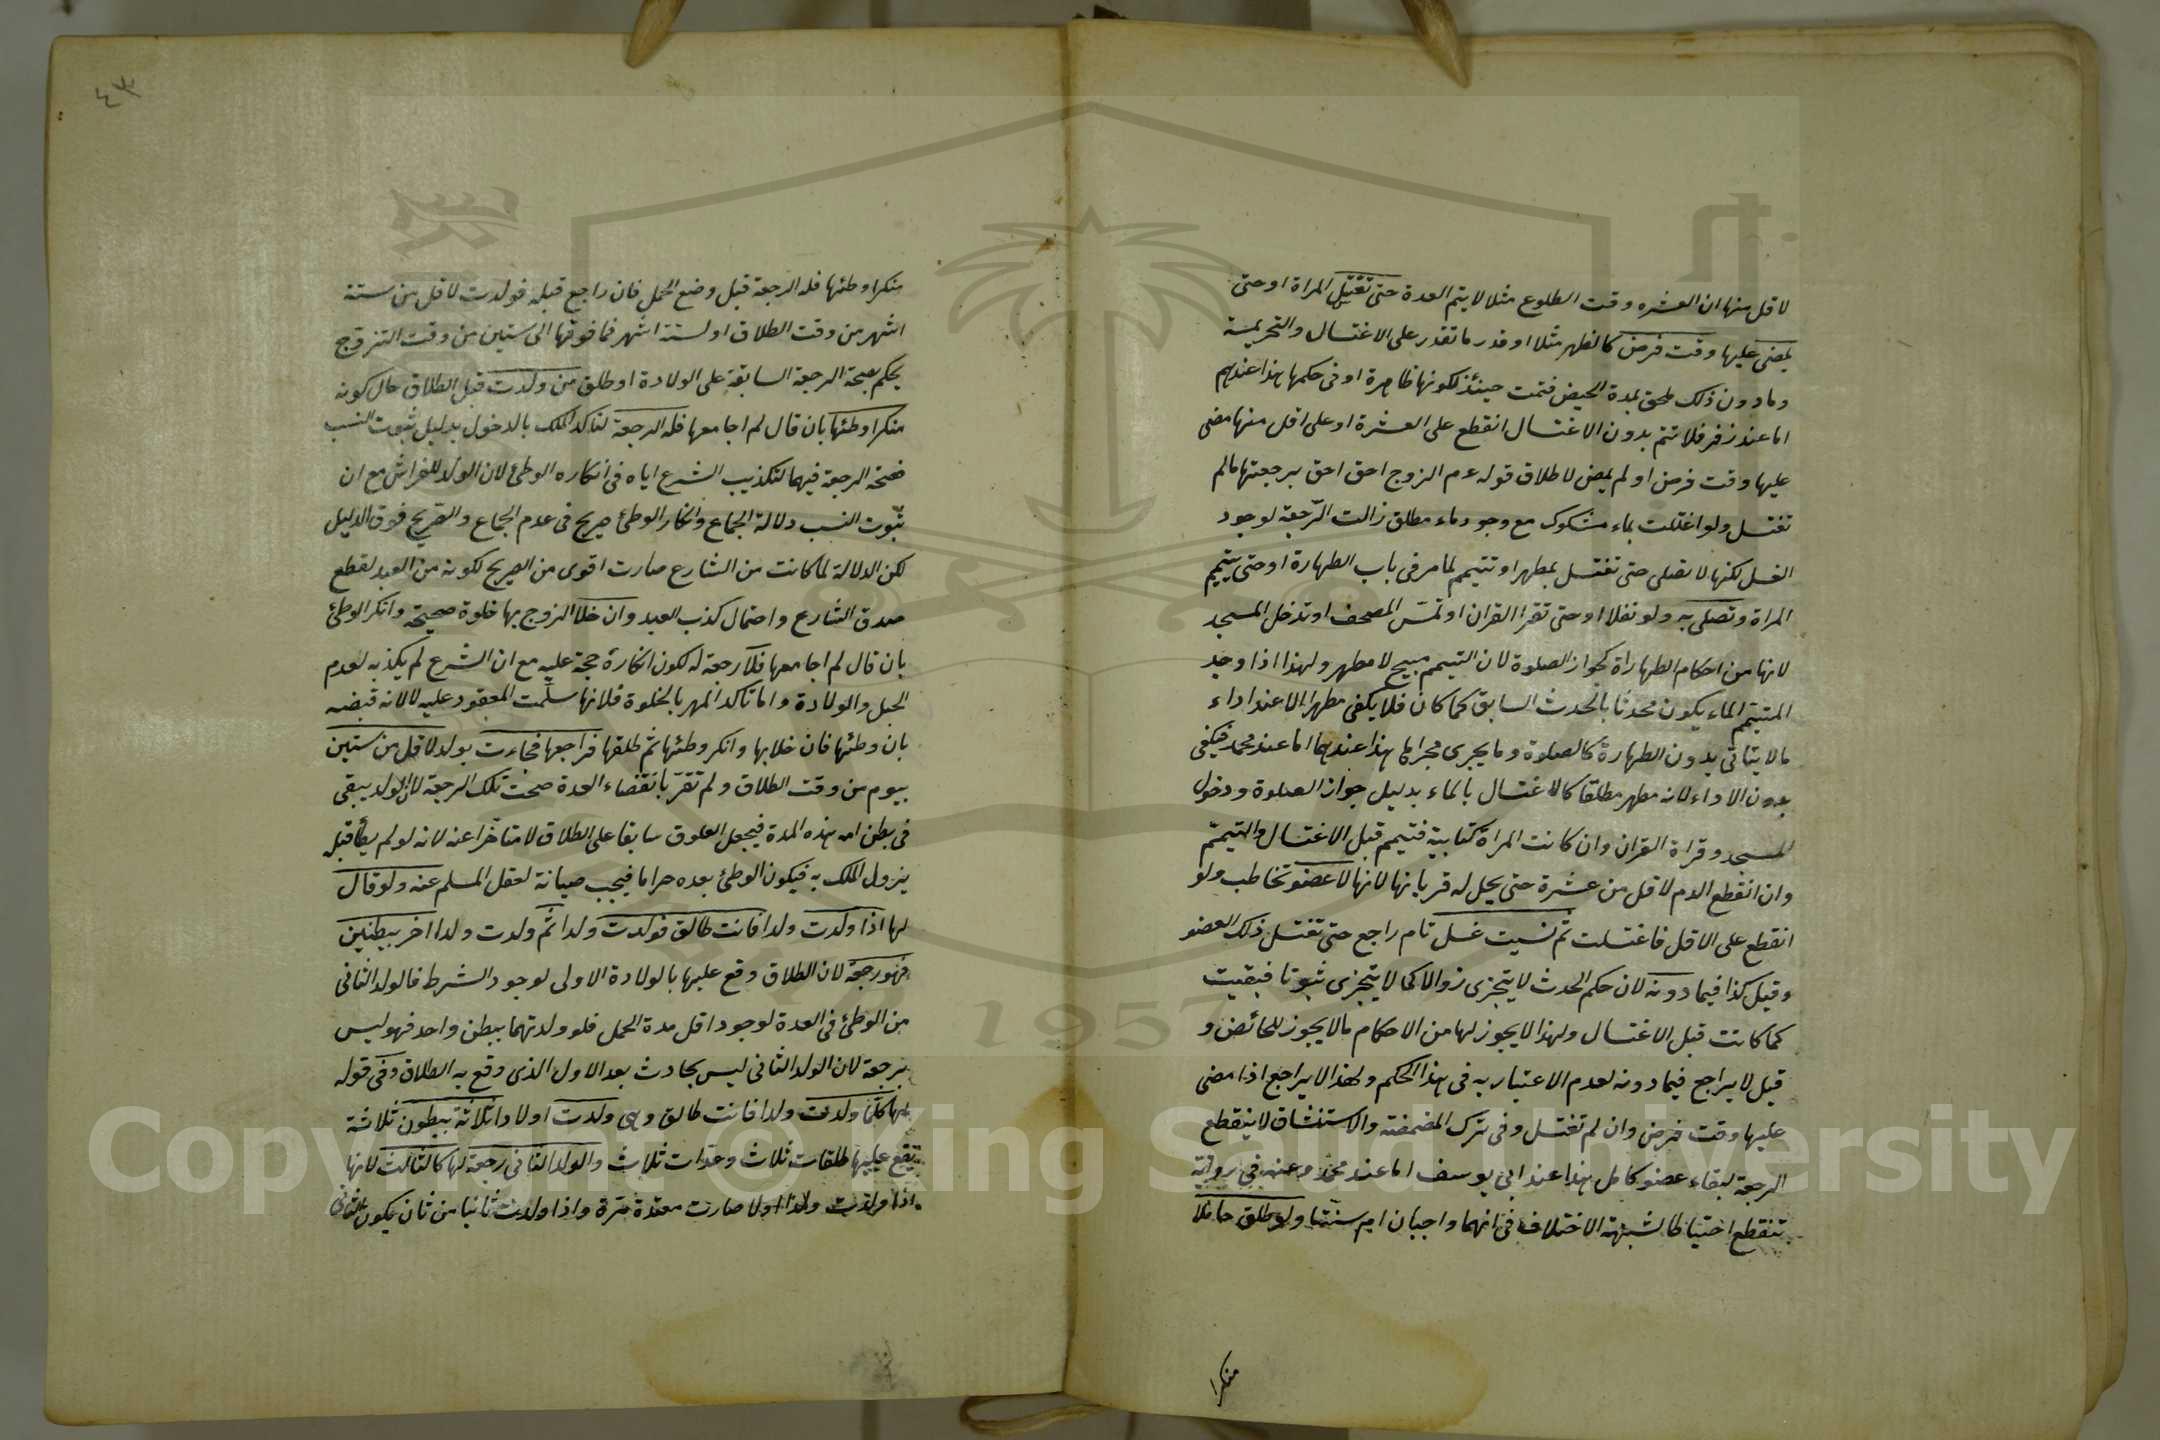 لاقل منها ان العشره وقت الطلوع مثلا لا يتم العدة حتى تغتسل المراة او حتى
يمضى عليها وقت فرض كالظهر مثلا او قدر ما تقدر على الاغتسال والتحريمة
وما دون ذلك ملحق بمدة الحيض فتمت حينئذ لكونها طاهرة او فى حكمها هذا عندهم
اما عند زفر فلا تتم بدون الاغتسال انقطع على العشرة او على اقل منها مضى
عليها وقت فرض او لم يمض لاطلاق قوله عم الزوج احق احق برجعتها مالم
تغتسل ولو اغتسلت بماء مشكوك مع وجود ماء مطلق زالت الرجعة لوجود
الغسل لكنها لا تصلى حتى تغتسل بمطهر او تتيمم لما مر فى باب الطهارة او حتى تتيمم
المراة وتصلى به ولو نفلا او حتى تقرا القران او تمس المصحف او تدخل المسجد
لانها من احكام الطهاراة كجواز الصلوة لان التيمم مبيح لا مطهر ولهذا اذا وجد
المتيمم الماء يكون محدثا بالحدث السابق كما كان فلا يكفى مطهرا الا عند اداء
مالا يتاتى بدون الطهارة كالصلوة وما يجرى مجراها هذا عندهما اما عند محمد فيكفى
بدون الاداء لانه مطهر مطلقا كالاغتسال بالماء بدليل جواز الصلوة ودخول
المسجد وقراة القران وان كانت المراة كتابية فتيمم قبل الاغتسال والتيمم
وان انقطع الدم لاقل من عشرة حتى يحل له قربانها لانها لا تخاطب ولو
انقطع على الاقل فاغتسلت ثم نسيت غسل تام راجع حتى تغتسل ذلك العضو
وقيل كذا فيما دونه لان حكم الحدث لا يتجزى زوالا كما لا يتجزى ثبوتا فبقيت
كما كانت قبل الاغتسال ولهذا لا يجوز لها من الاحكام مالا يجوز للحائض و
قيل لا يراجع فيما دونه لعدم الاعتبار به فى هذا الحكم ولهذا لا يراجع اذا مضى
عليها وقت فرض وان لم تغتسل وفى ترك المضمضة والاستنشاق لا ينقطع
الرجعة لبقاء عضو كامل هذا عند ابى يوسف اما عند محمد وعنه فى رواية
تنقطع احتياطا لشبهة الاختلاف فى انهما واجبان ام سنتا ولو طلق حاملا
منكرا
٤٣
منكرا وطئها فله الرجعة قبل وضع الحمل فان راجع قبله فولدت لاقل من ستة
اشهر من وقت الطلاق او لستة اشهر فما فوقها الى ستين من وقت التزوج
يحكم بصحة الرجعة السابقة على الولادة او طلق من ولدت قبل الطلاق حال كونه
منكرا وطئها بان قال لم اجامعها فله الرجعة لتاكد الملك بالدخول بدليل ثبوت النسب
فصحة الرجعة فيهما لتكذيب الشرع اياه فى انكاره الوطئ لان الولد للفراش مع ان
ثبوت النسب دلالة الجماع وانكار الوطئ صريح فى عدم الجماع والصريح فوق الدليل
لكن الدلالة لما كانت من الشارع صارت اقوى من الصريح لكونه من العبد لقطع
صدق الشارع واحتمال كذب العبد وان خلا الزوج بها خلوة صحيحة وانكر الوطئ
بان قال لم اجامعها فلا رجعة له لكون انكاره حجة عليه مع ان الشرع لم يكذبه لعدم
الحبل والولادة واما تاكد المهر بالخلوة فلانها سلمت المعقود عليه لا لانه قبضه
بان وطئها فان خلا بها وانكر وطئها ثم طلقها فراجعها فجاءت بولد لاقل من ستين
بيوم من وقت الطلاق ولم تقر بانقضاء العدة صحت تلك الرجعة لان الولد يبقى
فى بطن امه هذه المدة فيجعل العلوق سابقا على الطلاق لا متاخرا عنه لانه لو لم يطأ قبله
يزول الملك به فيكون الوطئ بعده حراما فيجب صيانة لعقل المسلم عنه ولو قال
لها اذا ولدت ولدا فانت طالق فولدت ولدا ثم ولدت ولدا اخر ببطنين
فهو رجعة لان الطلاق وقع عليها بالولادة الاولى لوجود الشرط فالولد الثانى
من الوطئ فى العدة لوجود اقل مدة الحمل فلو ولدتهما ببطن واحد فهو ليس
برجعة لان الولد الثانى ليس بحادث بعد الاول الذى وقع به الطلاق وفى قوله
لها كلما ولدت ولدا فانت طالق وهى ولدت اولادا ثلاثة ببطون ثلاثة
يقع عليها طلقات ثلاث وعدات ثلاث والولد الثانى رجعة لها كالثالث لانها
اذا ولدت ولدا اولا صارت معتدة مرة واذا ولدت ثانيا من ثان يكون الثانى
Copyright © King Saud University
1957